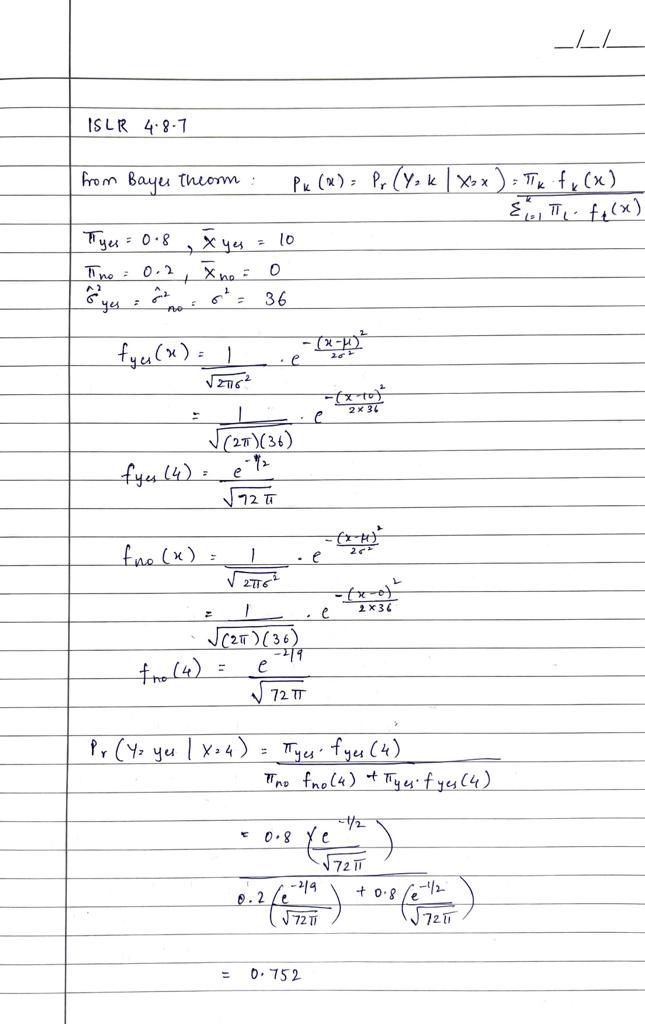 _/_/_
ISLR 4.8.7
From Bayes Theorm : Pk(x) = Pr(Y=k | X=x) = πk · fk(x) / Σ^k_{l=1} πl · fl(x)
πyes = 0.8 , x̄yes = 10
πno = 0.2 , x̄no = 0
σ̂²yes = σ̂²no = σ² = 36
fyes(x) = 1/√(2πσ²) · e^(-(x-μ)²/2σ²)
= 1/√((2π)(36)) · e^(-(x-10)²/2×36)
fyes(4) = e^(-1/2)/√(72π)
fno(x) = 1/√(2πσ²) · e^(-(x-μ)²/2σ²)
= 1/√((2π)(36)) · e^(-(x-0)²/2×36)
fno(4) = e^(-2/9)/√(72π)
Pr(Y=yes | X=4) = πyes · fyes(4) / πno fno(4) + πyes · fyes(4)
= 0.8 (e^(-1/2)/√(72π)) / 0.2 (e^(-2/9)/√(72π)) + 0.8 (e^(-1/2)/√(72π))
= 0.752